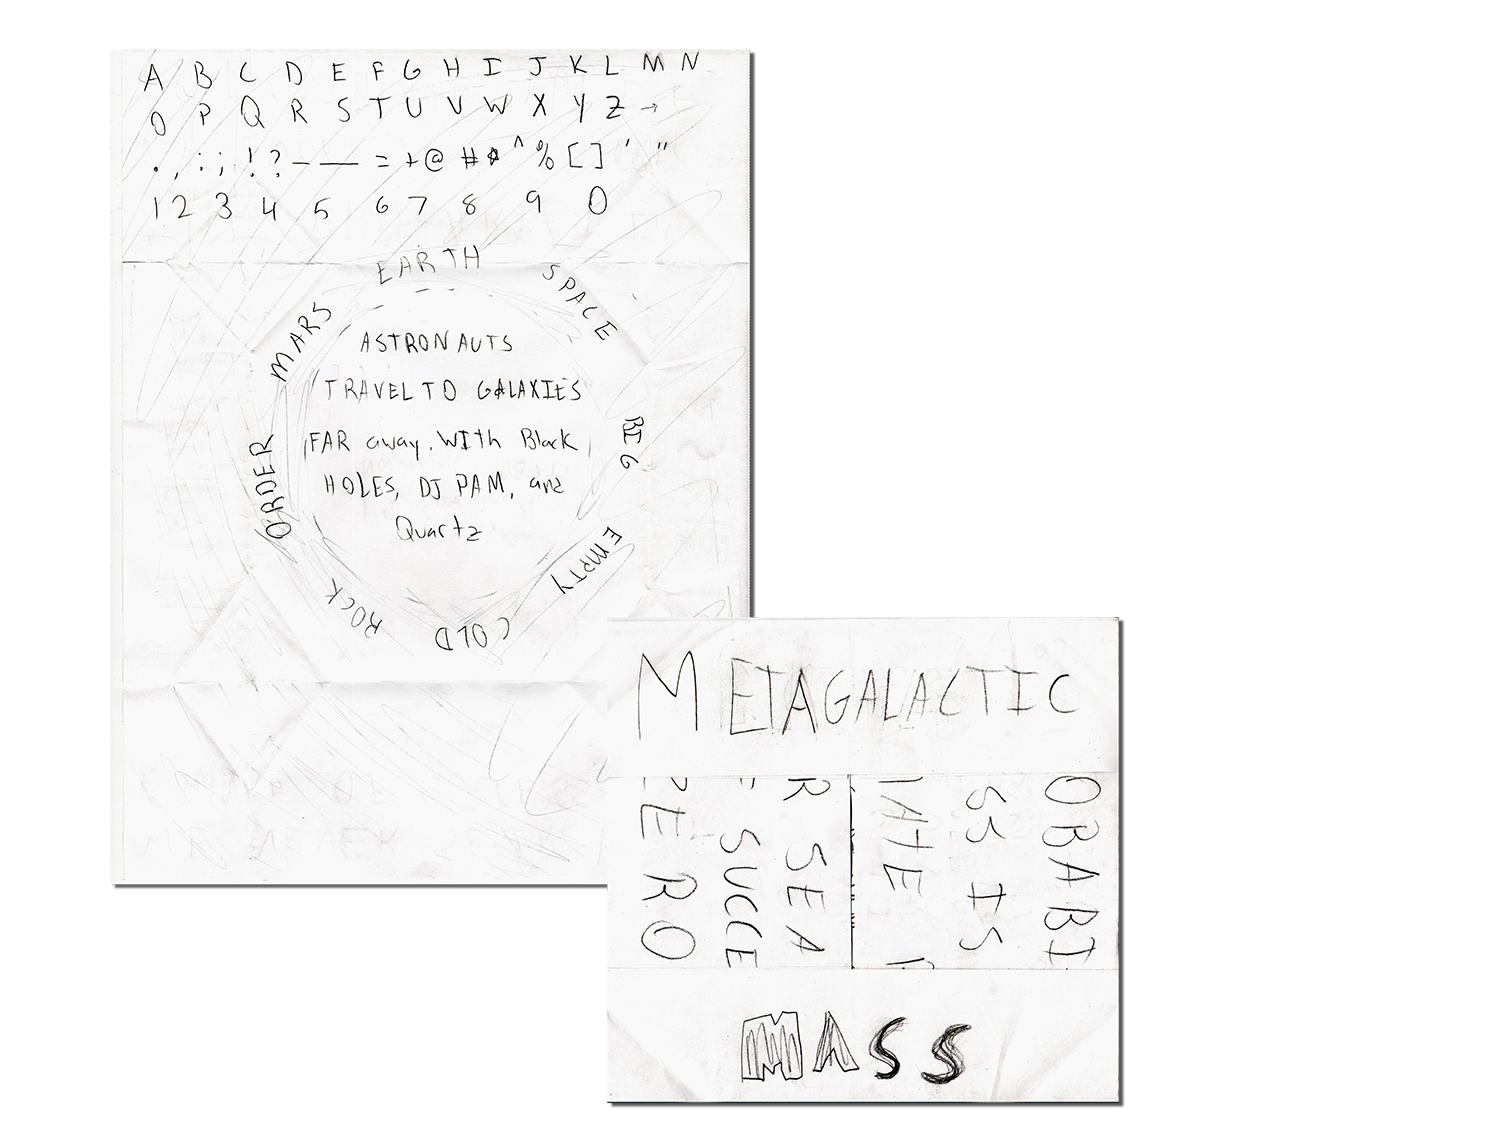 A B C D E F G H I J K L M N
O P Q R S T U V W X Y Z →
. , : ; ! ? - — = + @ # ^ % [ ] ' "
1 2 3 4 5 6 7 8 9 0
EARTH
SPACE
BIG
EMPTY
COLD
ROCK
ORDER
MARS
ASTRONAUTS
TRAVEL TO GALAXIES
FAR away. WITh Black
HOLES, DJ PAM, and
Quartz
METAGALACTIC
OBABI
SS IS
R SEA
SUCCE
ERO
MASS